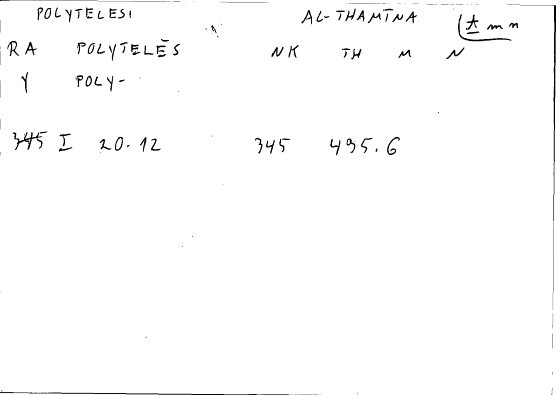 POLYTELESI AL-THAMĪNA (ṯ m n
RA POLYTELĒS NK TH M N
Y POLY-
345 I 20.12 345 495.6